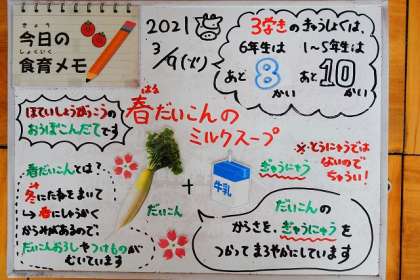 きょう
今日の
しょくいく
食育メモ
2021
3/9(火)
3学きのきゅうしょくは、
6年生は
あと
8
かい
1~5年生は
あと
10
かい
ほていしょうがっこうの
おうぼこんだてです
はる
春だいこんの
ミルクスープ
春だいこんとは?
冬にたねをまいて
→春にしゅうかく
からみがあるので、
だいこんおろしやつけものが
むいています
だいこん
+
牛乳
ぎゅうにゅう
とうにゅうでは
ないので
ちゅうい!
だいこんの
からさを、ぎゅうにゅうを
つかってまろやかにしています